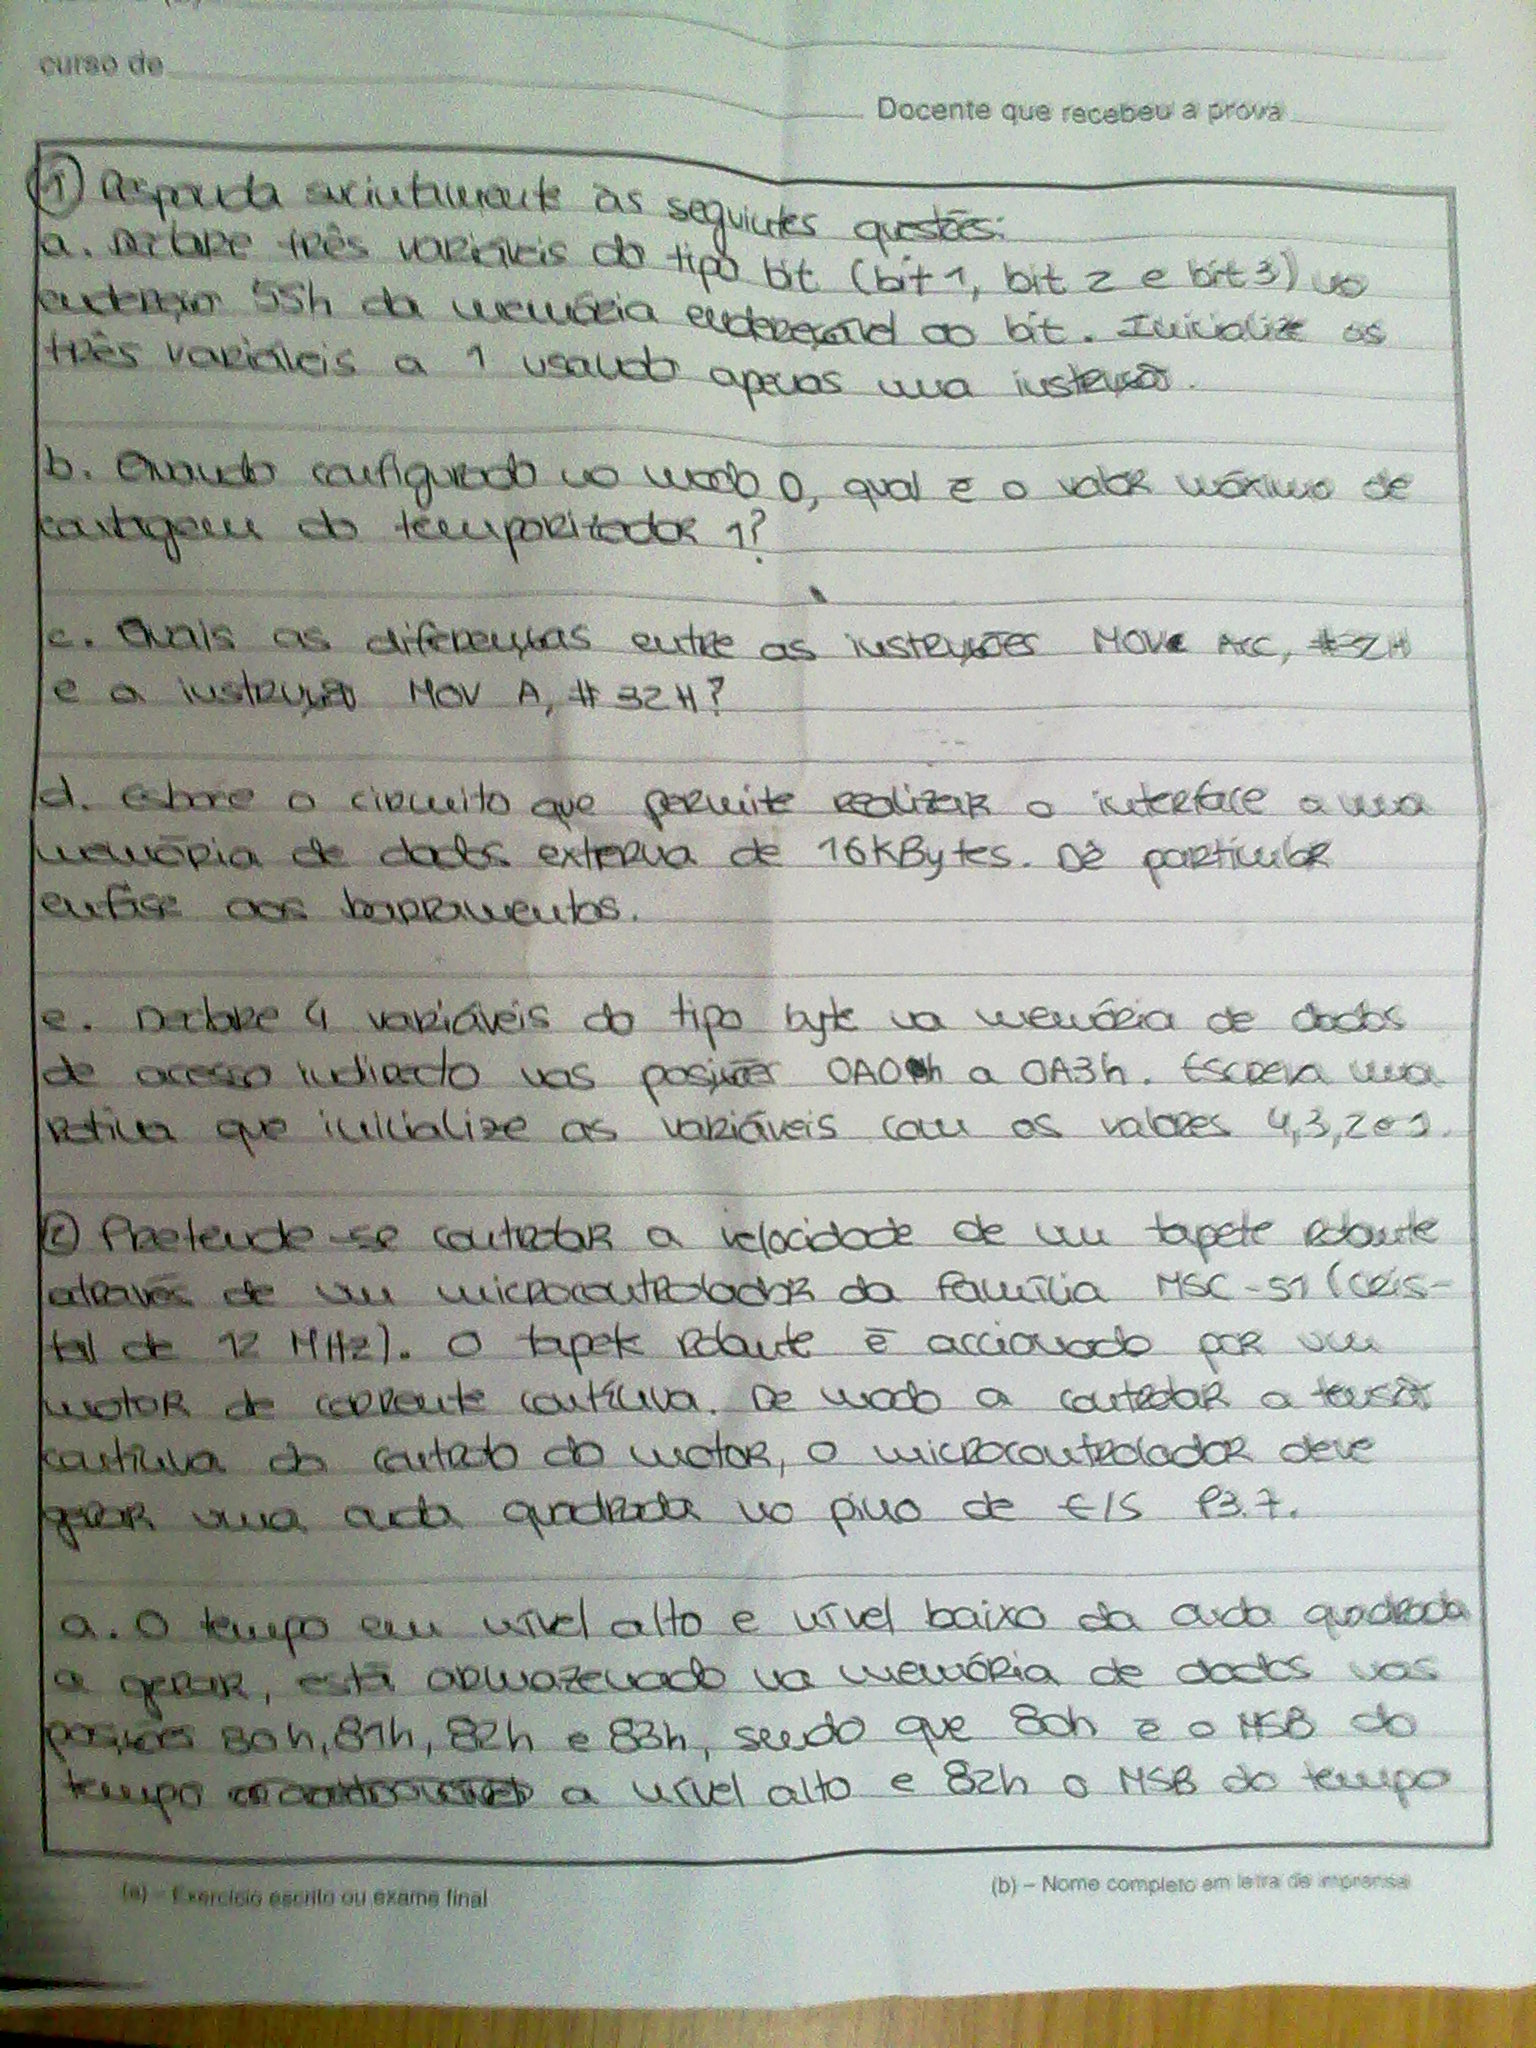 curso de
Docente que recebeu a prova
① Responda sucintamente às seguintes questões:
a. Declare três variáveis do tipo bit (bit 1, bit 2 e bit 3) no
endereço 55h da memória endereçável ao bit. Inicialize as
três variáveis a 1 usando apenas uma instrução.
b. Quando configurado no modo 0, qual é o valor máximo de
contagem do temporizador 1?
c. Quais as diferenças entre as instruções MOV ACC, #32H
e a instrução MOV A, #32H?
d. Esboce o circuito que permite realizar o interface a uma
memória de dados externa de 16kBytes. Dê particular
enfâse aos barramentos.
e. Declare 4 variáveis do tipo byte na memória de dados
de acesso indirecto nas posições 0A0h a 0A3h. Escreva uma
rotina que inicialize as variáveis com os valores 4,3,2 e 1.
② Pretende-se controlar a velocidade de um tapete rolante
através de um microcontrolador da família MSC-51 (cris-
tal de 12 MHz). O tapete rolante é accionado por um
motor de corrente contínua. De modo a controlar a tensão
contínua do controlo do motor, o microcontrolador deve
gerar uma onda quadrada no pino de E/S P3.7.
a. O tempo em nível alto e nível baixo da onda quadrada
a gerar, está armazenado na memória de dados nas
posições 80h, 81h, 82h e 83h, sendo que 80h é o MSB do
tempo a nível alto e 82h o MSB do tempo
(a) – Exercício escrito ou exame final
(b) – Nome completo em letra de imprensa